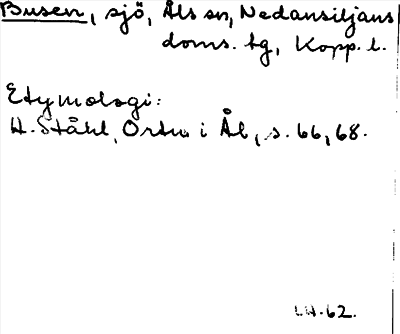 Busen, sjö, Åls sn, Nedansiljans
doms. tg, Kopp. l.
Etymologi:
H. Ståhl, Ortn i Ål, s. 66, 68.
LH. 62.